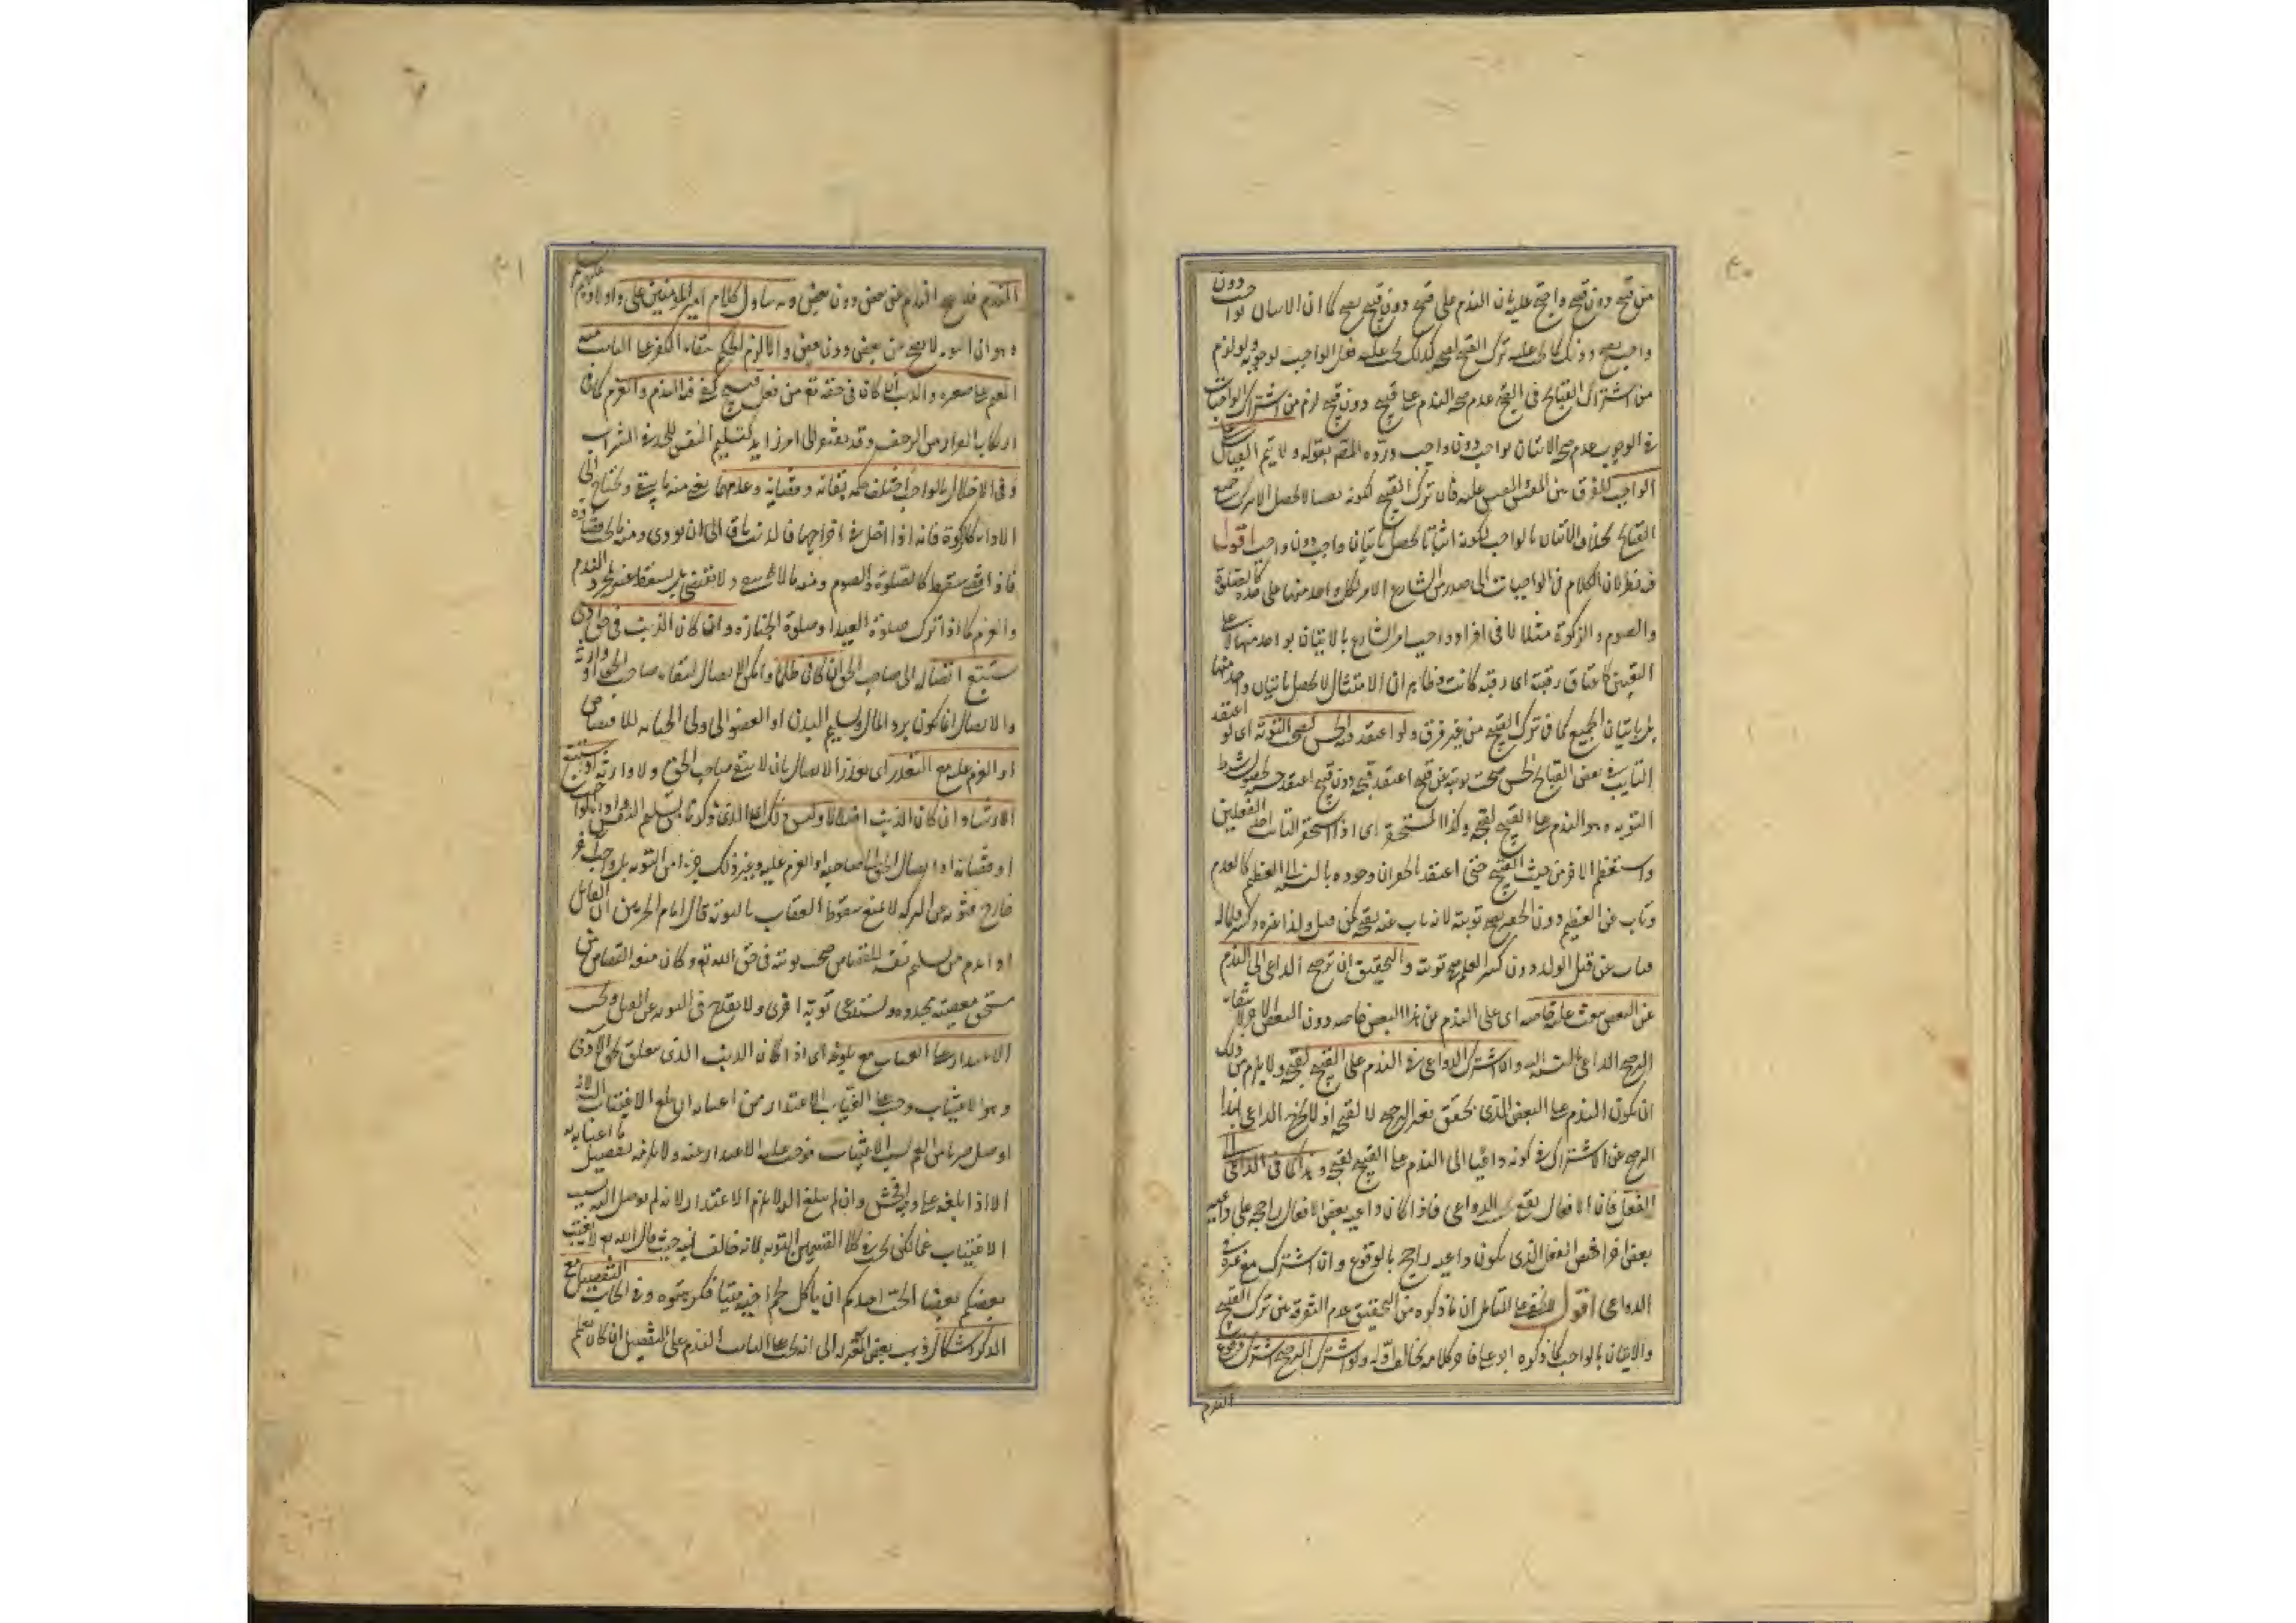 ٤٠
من قبيح دون قبيح واحتج عليه بان الندم على قبيح دون قبيح يصح كما ان الاتيان بواجب دون
واجب يصح وذلك كما يجب عليه ترك القبيح لقبحه كذلك يجب عليه فعل الواجب لوجوبه ولو لزم
من اشتراك القبائح فى القبح عدم صحة الندم على قبيح دون قبيح لزم من اشتراك الواجبات
فى الوجوب عدم صحة الاتيان بواجب دون واجب وردّه المصـ بقوله ولا يتم القياس على
الواجب للفرق بين المقيس والمقيس عليه فان ترك القبيح لكونه نفيا لا يحصل الا بترك جميع
القبائح بخلاف الاتيان بالواجب لكونه اثباتا يحصل باتيان واجب دون واجب اقول
فيه نظر لان الكلام فى الواجبات التى صدر من الشارع الامر بكل واحد منها على حدة كالصلوة
والصوم والزكوة مثلا لا فى افراد واجب امر الشارع بالاتيان بواحد منها لا على
التعيين كاعتاق رقبة اى رقبة كانت وظاهر ان الامتثال لا يحصل باتيان واحد منها
بل باتيان الجميع كما فى ترك القبيح من غير فرق ولو اعتقد فيه الحسن لصحت التوبة اى لو اعتقد
التايب فى بعض القبائح الحسن صحت توبته عن قبيح اعتقد قبحه دون قبيح اعتقد حسنه لحصول شرط
التوبة وهو الندم على القبيح لقبحه وكذا المستحقر اى اذا استحقر التائب احد الفعلين
واستعظم الاخر من حيث القبيح حتى اعتقد الحقير ان وجوده بالنسبة الى العظيم كالعدم
وتاب عن العظيم دون الحقير يصح توبته لانه تاب عنه لقبحه كمن قتل ولد غيره وكسر قلما له
فتاب عن قتل الولد دون كسر القلم صح توبته والتحقيق ان ترجح الداعى الى الندم
عن البعض يبعث عليه خاصة اى على الندم عن هذا البعض خاصة دون البعض الاخر لانتفاء
ترجح الداعى بالنسبة اليه وان اشترك الدواعى فى الندم على القبيح لقبحه ولا يلزم من ذلك
ان يكون الندم على البعض الذى تحقق معه الترجح لا لقبحه اذ لا يخرج الداعى بهذا
الترجح عن الاشتراك فى كونه داعيا الى الندم على القبيح لقبحه وهذا كما فى الداعى الى
الفعل فان الافعال يقع بحسب الدواعى فاذا كان داعيه بعض الافعال راجحه على داعيه
بعض اخر اختص الفعل الذى يكون داعيه راجح بالوقوع وان اشترك مع غيره فى
الدواعى اقول لا يخفى على المتامل ان ما ذكره من التحقيق عدم التفرقة بين ترك القبيح
والاتيان بالواجب كما ذكره ابو على فاخر كلامه يخالف اوله ولو اشترك الترجح اشترك وقوع
الندم
٤١
الندم فلا يصح الندم عن بعض دون بعض وبه يتاول كلام امير المؤمنين على واولاده عليهم السلام
وهو ان التوبة لا يصح من بعض دون بعض والا لزم الحكم ببقاء الكفر على التائب منه
المقيم على صغيرة والذنب ان كان فى حقه تعـ من فعل قبيح كفى فيه الندم والعزم كما فى
ارتكاب الفرار من الزحف وقد يفتقر الى امر زايد كتسليم النفس للحد فى الشرب
وفى الاخلال بالواجب اختلف حكمه فى بقائه وقضائه وعدمهما يعنى منه ما يبقى ويحتاج الى
الاداء كالزكوة فانه اذا اخل فى اخراجها فالذنب باق الى ان يودى ومنه ما يجب قضاؤه
فاذا قضى سقط كالصلوة والصوم ومنه ما لا يبقى ولا يقضى بل يسقط عنه بمجرد الندم
والعزم كما اذا ترك صلوة العيد او صلوة الجنازة وان كان الذنب فى حق آدمى
استتبع ايصاله الى صاحب الحق ان كان ظلما وامكن الايصال لبقاء صاحب الحق او وارثه
والايصال انما يكون برد المال وتسليم البدن او العضو الى ولى الجناية للاقتصاص
او العزم عليه مع التعذر اى تعذر الايصال بان لا يبقى صاحب الحق ولا وارثه او استتبع
الارشاد ان كان الذنب اضلالا وليس ذلك اى الذى ذكرنا من تسليم النفس او اداء الواجب
او قضائه او ايصال الحق الى صاحبه او العزم عليه وغير ذلك جزءا من التوبة بل واجب اخر
خارج فتوبه عن التركه لا يمنع سقوط العقاب بالتوبة قال امام الحرمين ان القاتل
اذا ندم من تسليم نفسه للقصاص صحت توبته فى حق الله تعـ وكان منعه القصاص من
مستحق معصية مجددة يستدعى توبة اخرى ولا يقدح فى التوبة عن القتل ويجب
الاعتذار على المغتاب مع بلوغه اى اذا كان الذنب الذى يتعلق بحق الآدمى
وهو الاغتياب وجب على المغتاب الاعتذار ممن اغتابه ان بلغ الاغتياب اليه لانه
اوصل ضربا من الغم بسبب الاغتياب فوجب عليه الاعتذار عنه ولا يلزمه تفصيل ما اغتابه به
الا اذا بلغه على وجه افحش وان لم يبلغ اليه لا يلزم الاعتذار لانه لم يوصل اليه بسبب
الاغتياب غما لكن يجب فى كلا القسمين التوبة لانه خالف نهيه حيث قال الله تعـ ولا يغتب
بعضكم بعضا أيحب احدكم ان ياكل لحم اخيه ميتا فكرهتموه وفى ايجاب التفصيل مع
الذكر اشكال ذهب بعض المعتزلة الى انه يجب على التائب الندم على التفصيل ان كان يعلم